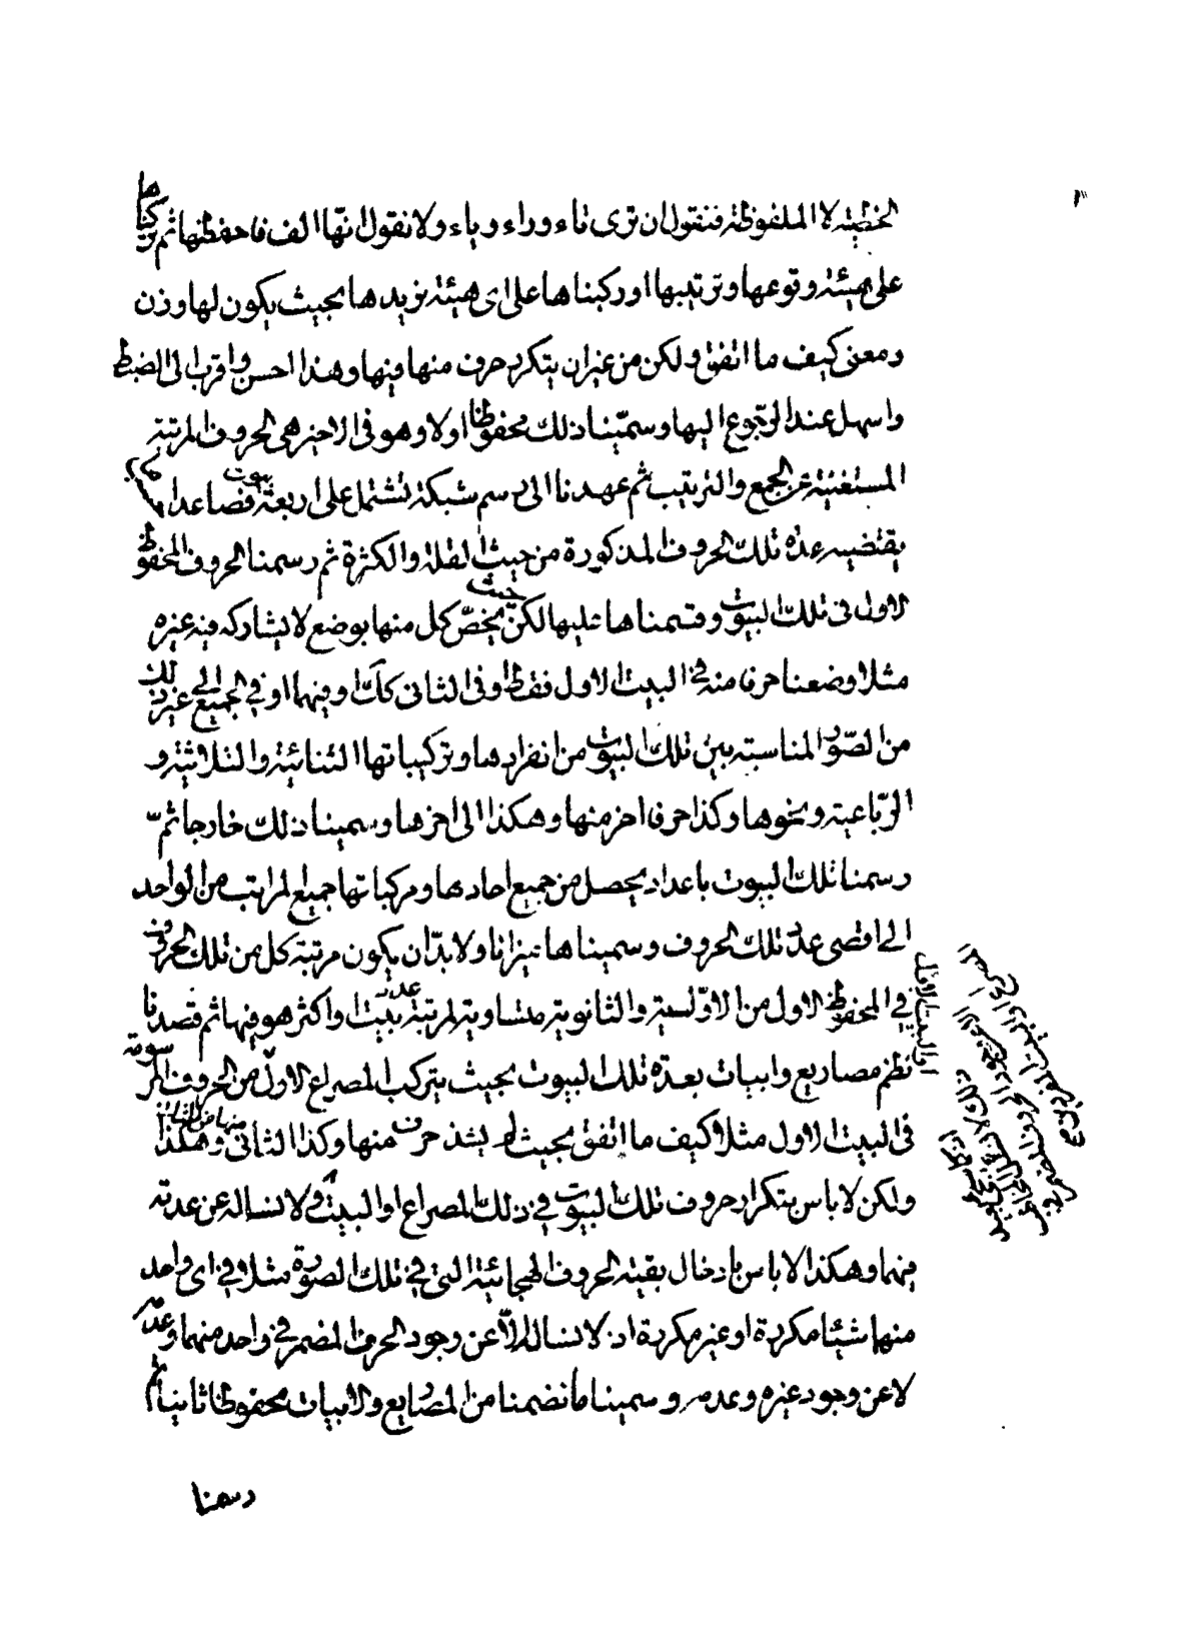 الخطية لا الملفوظة فنقول ان ترى تاء وراء وياء ولا نقول انها الف فاحفظها ثم ركبناها
على هيئة وقوعها وترتيبها او ركبناها على اى هيئة نريدها بحيث يكون لها وزن
ومعنى كيف ما اتفق ولكن من غير ان يتكرر حرف منها فيها وهذا احسن واقرب الى الضبط
واسهل عند الرجوع اليها وسمّينا ذلك محفوظا اولا وهو فى الاخير هى الحروف المرتبة
المستغنية عن الجمع والترتيب ثم عهدنا الى رسم شبكة تشتمل على اربعة بيوت فصاعدا
يقتضيه عدة تلك الحروف المذكورة من حيث القلة والكثرة ثم رسمنا الحروف المحفوظ
الاول فى تلك البيوت وقسمناها عليها لكن بحيث يخصّ كل منها بوضع لا يشاركه فيه غيره
مثلا وضعنا حرفا منه فى البيت الاول فقط وفى الثانى كك او فيهما او فى الجميع الى غير ذلك
من الصّور المناسبة بين تلك البيوت من انفرادها وتركيباتها الثنائية والثلاثية و
الرّباعية ونحوها وكذا حرفا اخر منها وهكذا الى اخرها وسمينا ذلك خارجا ثمّ
رسمنا تلك البيوت باعداد يحصل من جميع احادها ومركباتها جميع المراتب من الواحد
الى اقصى عدة تلك الحروف وسميناها ميزانا ولا بدّ ان يكون مرتبة كل من تلك الحروف
فى المحفوظ الاول من الاوّلية والثانوية متساوية لمرتبة عدد بيت او اكثر هو فيها ثم قصدنا
نظم مصاريع وابيات بعدة تلك البيوت بحيث يتركب المصراع الاول من الحروف المرسومة
فى البيت الاول مثلا كيف ما اتفق بحيث لم يشذ حرف منها وكذا الثانى منها من الثانى وهكذا
ولكن لا باس بتكرار حروف تلك البيوت فى ذلك المصراع او البيت ولا نساله عن عدته
فيهما وهكذا لا باس بادخال بقية الحروف الهجائية التى فى تلك الصورة مثلا فى اى واحد
منها شيئا مكررة او غير مكررة اذ لا نساله الّا عن وجود الحرف المضمر فى واحد منهما وعدمه
لا عن وجود غيره وعدمه وسمينا ما نضمنا من المصاريع والابيات محفوظا ثانيا ثم
رسمنا
او البيت الاول